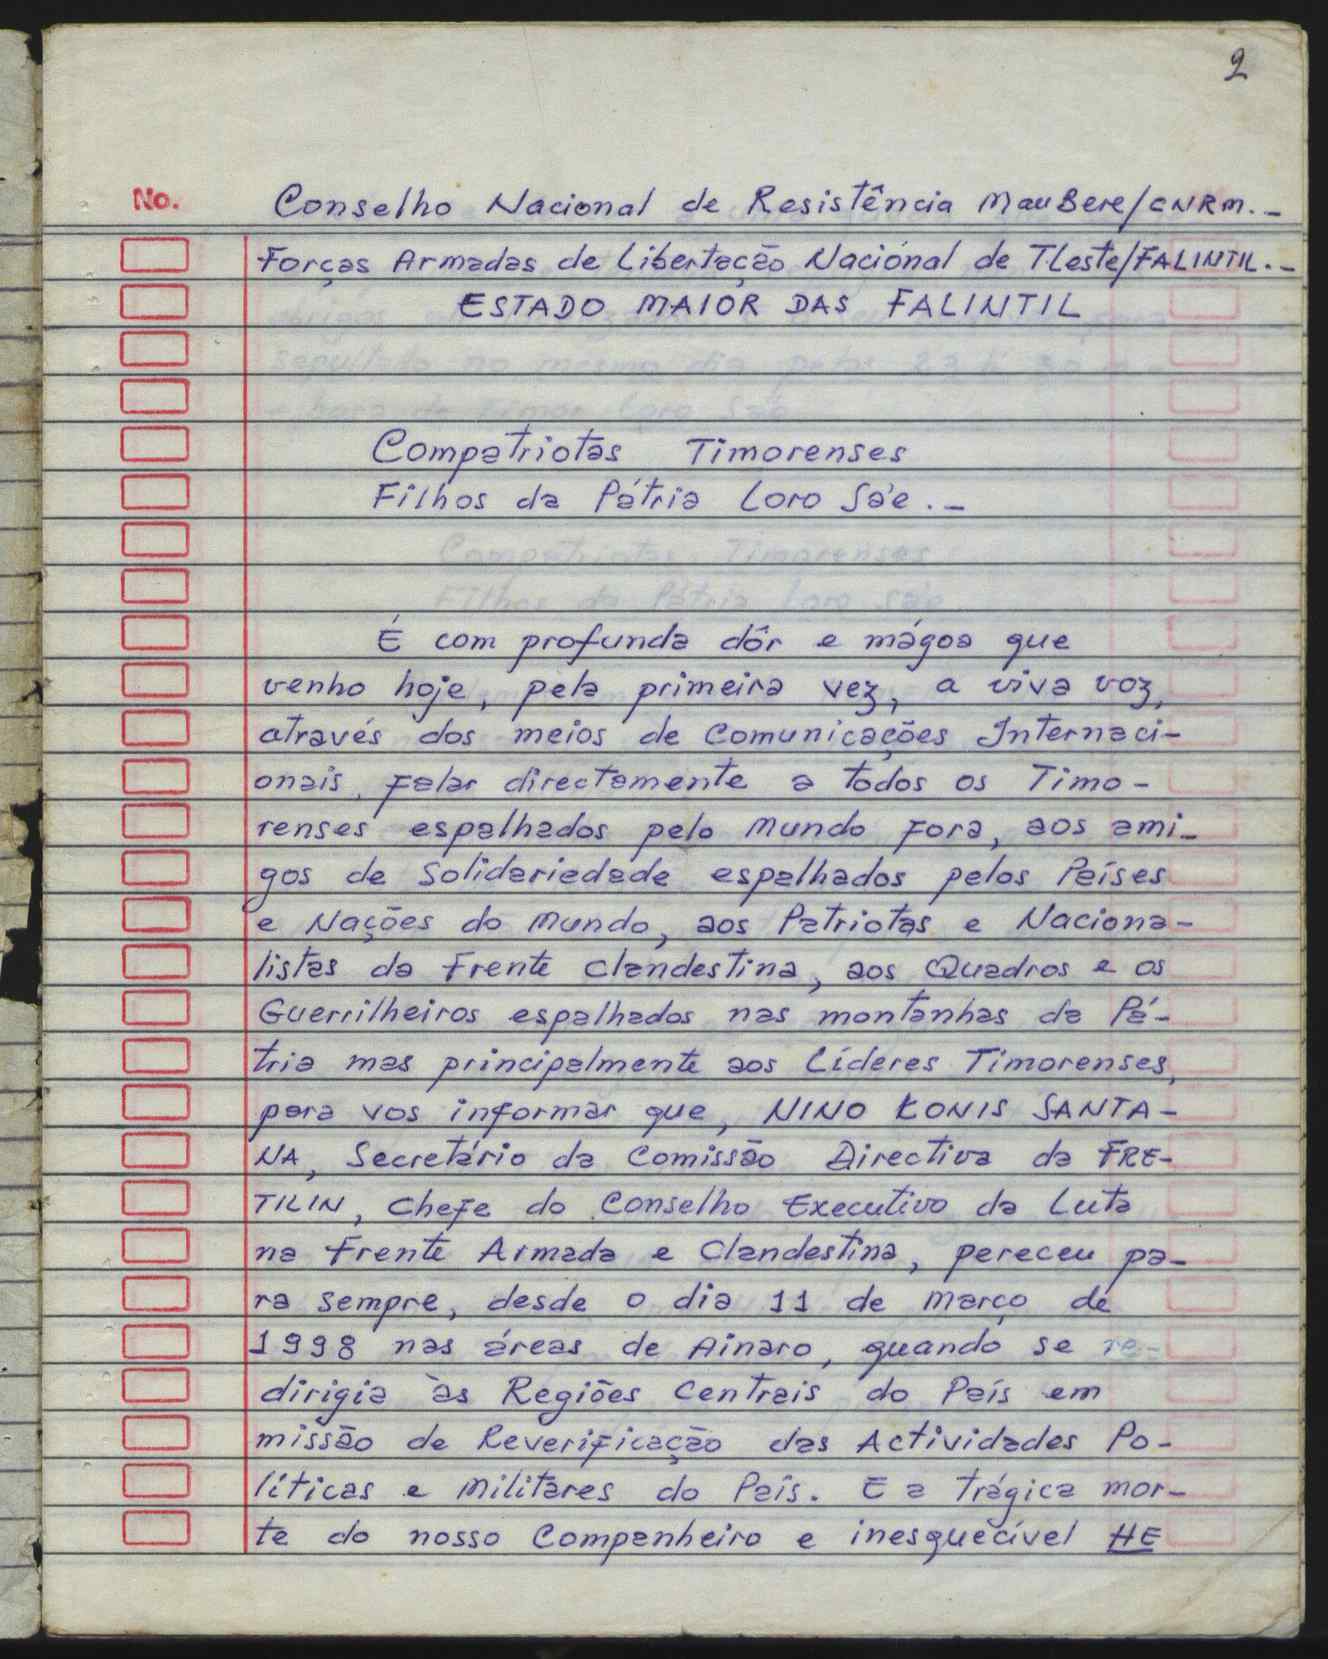 2
No. Conselho Nacional de Resistência MauBere/CNRM._
Forças Armadas de Libertação Nacional de TLeste/FALINTIL._
ESTADO MAIOR DAS FALINTIL
Compatriotas Timorenses
Filhos da Pátria Loro Sá'e._
É com profunda dôr e mágoa que
venho hoje, pela primeira vez, a viva voz,
através dos meios de Comunicações Internaci-
onais, falar directamente a todos os Timo-
renses espalhados pelo Mundo Fora, aos ami-
gos de Solidariedade espalhados pelos Países
e Nações do Mundo, aos Patriotas e Naciona-
listas da Frente Clandestina, aos Quadros e os
Guerrilheiros espalhados nas montanhas da Pá-
tria mas principalmente aos Líderes Timorenses,
para vos informar que, NINO KONIS SANTA-
NA, Secretário da Comissão Directiva da FRE-
TILIN, Chefe do Conselho Executivo da Luta
na Frente Armada e Clandestina, pereceu pa-
ra sempre, desde o dia 11 de Março de
1998 nas áreas de Ainaro, quando se re-
dirigia às Regiões Centrais do País em
missão de Reverificação das Actividades Po-
líticas e Militares do País. E a trágica mor-
te do nosso Companheiro e inesquecível HE